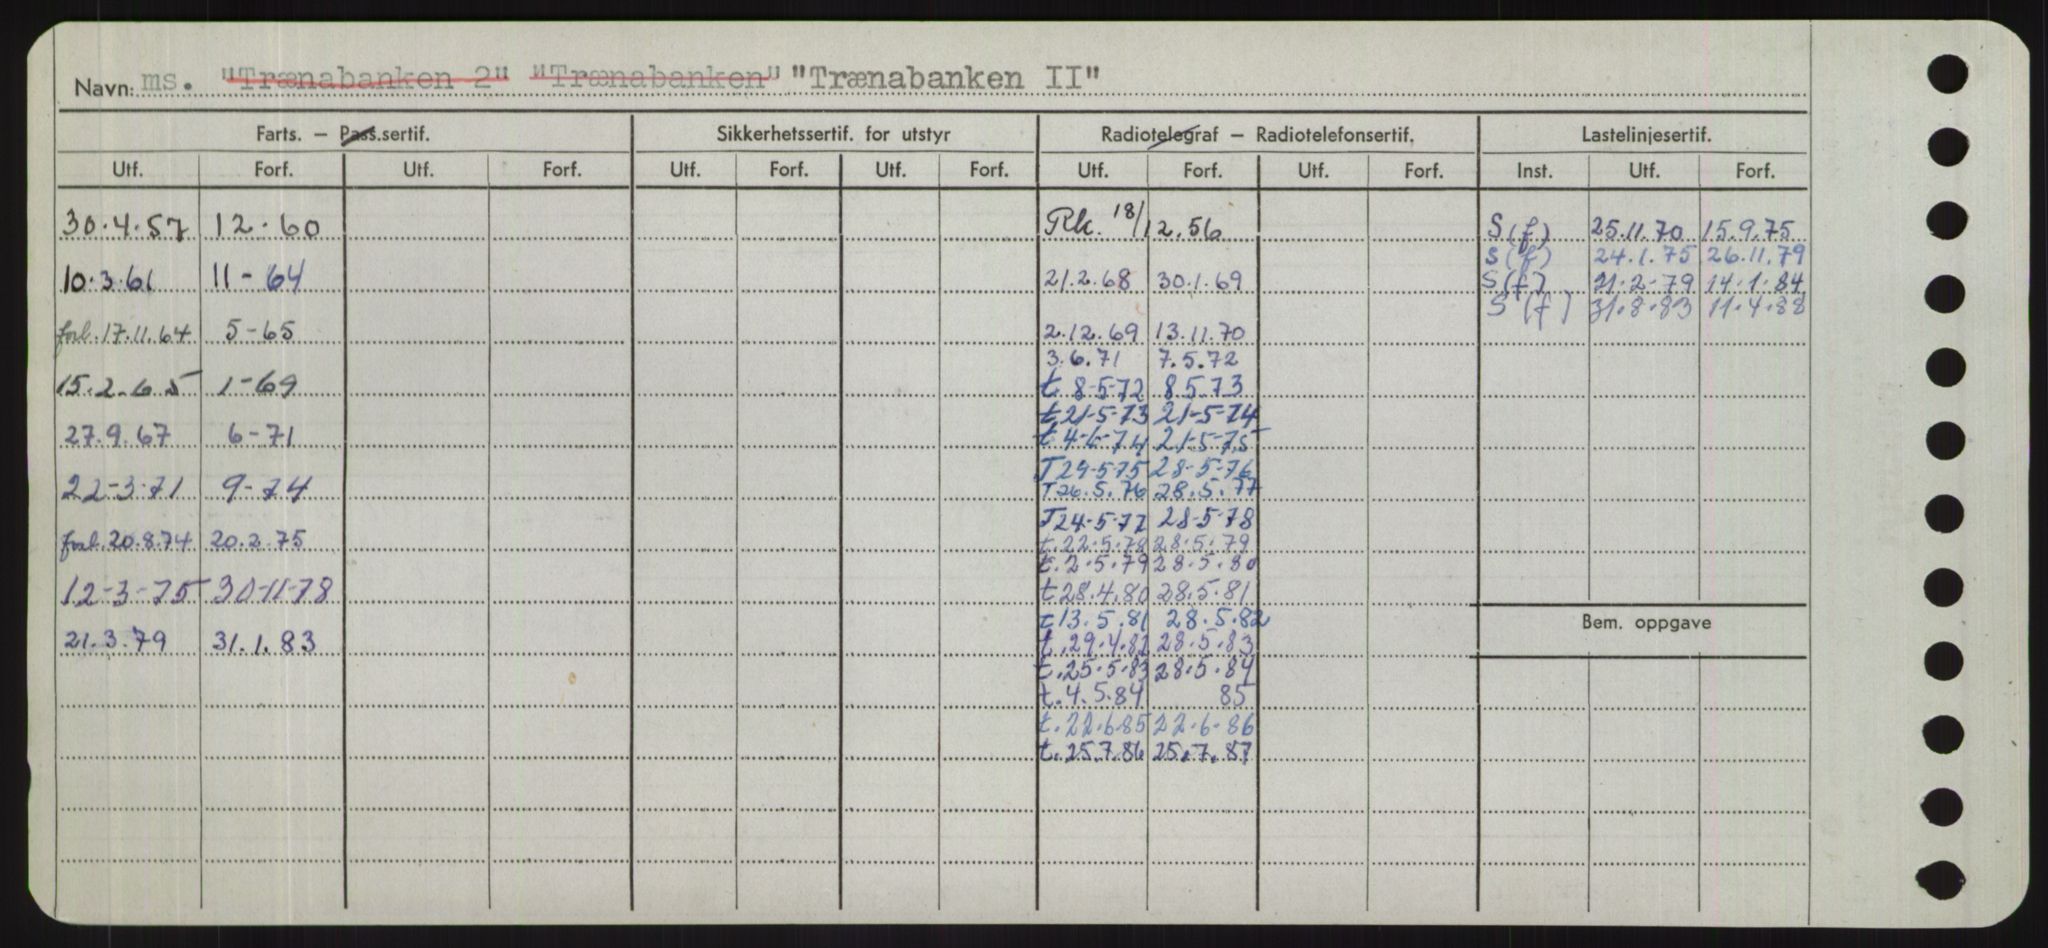 Navn: ms. "Trænabanken 2" "Trænabanken" "Trænabanken II"
Farts. — Pass.sertif. Sikkerhetssertif. for utstyr Radiotelegraf — Radiotelefonsertif. Lastelinjesertif.
Utf. Forf. Utf. Forf. Utf. Forf. Utf. Forf. Utf. Forf. Utf. Forf. Inst. Utf. Forf.
30.4.57 12.60
10.3.61 11-64
forl. 17.11.64 5-65
15.2-65 1-69
27.9.67 6-71
22-3-71 9-74
forl. 20.8.74 20.2.75
12-3-75 30-11-78
21.3.79 31.1.83
Rk. 18/12.56
21.2.68 30.1.69
2.12.69 13.11.70
3.6.71 7.5.72
t. 8-5-72 8.5.73
t 21-5-73 21-5-74
t 4-6-74 21-5-75
T 29-5-75 28-5-76
T 26.5.76 28.5.77
T 24-5-77 28-5-78
t. 22.5.78 28.5.79
t. 2.5.79 28.5.80
t 28.4.80 28.5.81
t 13.5.81 28.5.82
t. 29.4.82 28.5.83
t. 25.5.83 28.5.84
t. 4.5.84 85
t. 22.6.85 22.6.86
t. 25.7.86 25.7.87
S (f) 25.11.70 15.9.75
S (f) 24.1.75 26.11.79
S (f) 21.2.79 14.1.84
S (f) 31.8.83 11.4.88
Bem. oppgave